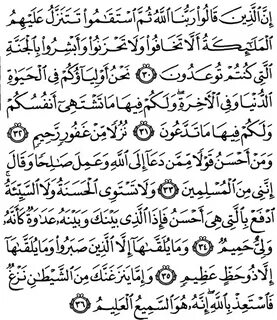 إِنَّ ٱلَّذِينَ قَالُوا۟ رَبُّنَا ٱللَّهُ ثُمَّ ٱسْتَقَٰمُوا۟ تَتَنَزَّلُ عَلَيْهِمُ
ٱلْمَلَٰٓئِكَةُ أَلَّا تَخَافُوا۟ وَلَا تَحْزَنُوا۟ وَأَبْشِرُوا۟ بِٱلْجَنَّةِ
ٱلَّتِى كُنتُمْ تُوعَدُونَ ٣٠ نَحْنُ أَوْلِيَآؤُكُمْ فِى ٱلْحَيَوٰةِ
ٱلدُّنْيَا وَفِى ٱلْءَاخِرَةِ ۖ وَلَكُمْ فِيهَا مَا تَشْتَهِىٓ أَنفُسُكُمْ
وَلَكُمْ فِيهَا مَا تَدَّعُونَ ٣١ نُزُلًا مِّنْ غَفُورٍ رَّحِيمٍ ٣٢
وَمَنْ أَحْسَنُ قَوْلًا مِّمَّن دَعَآ إِلَى ٱللَّهِ وَعَمِلَ صَٰلِحًا وَقَالَ
إِنَّنِى مِنَ ٱلْمُسْلِمِينَ ٣٣ وَلَا تَسْتَوِى ٱلْحَسَنَةُ وَلَا ٱلسَّيِّئَةُ ۚ
ٱدْفَعْ بِٱلَّتِى هِىَ أَحْسَنُ فَإِذَا ٱلَّذِى بَيْنَكَ وَبَيْنَهُۥ عَدَٰوَةٌ كَأَنَّهُۥ
وَلِىٌّ حَمِيمٌ ٣٤ وَمَا يُلَقَّىٰهَآ إِلَّا ٱلَّذِينَ صَبَرُوا۟ وَمَا يُلَقَّىٰهَآ
إِلَّا ذُو حَظٍّ عَظِيمٍ ٣٥ وَإِمَّا يَنزَغَنَّكَ مِنَ ٱلشَّيْطَٰنِ نَزْغٌ
فَٱسْتَعِذْ بِٱللَّهِ ۖ إِنَّهُۥ هُوَ ٱلسَّمِيعُ ٱلْعَلِيمُ ٣٦